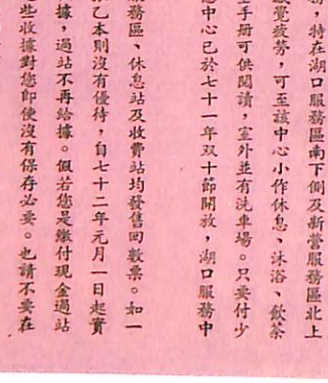 務，特在湖口服務區南下側及新營服務區北上
感覺疲勞，可至該中心小作休息、沐浴、飲茶
全手冊可供閱讀，室外並有洗車場。只要付少
息中心已於七十一年双十節開放，湖口服務中
服務區、休息站及收費站均發售回數票。如一
乙本則沒有優待，自七十二年元月一日起實
據，過站不再給據。假若您是繳付現金過站
些收據對您即使沒有保存必要。也請不要在